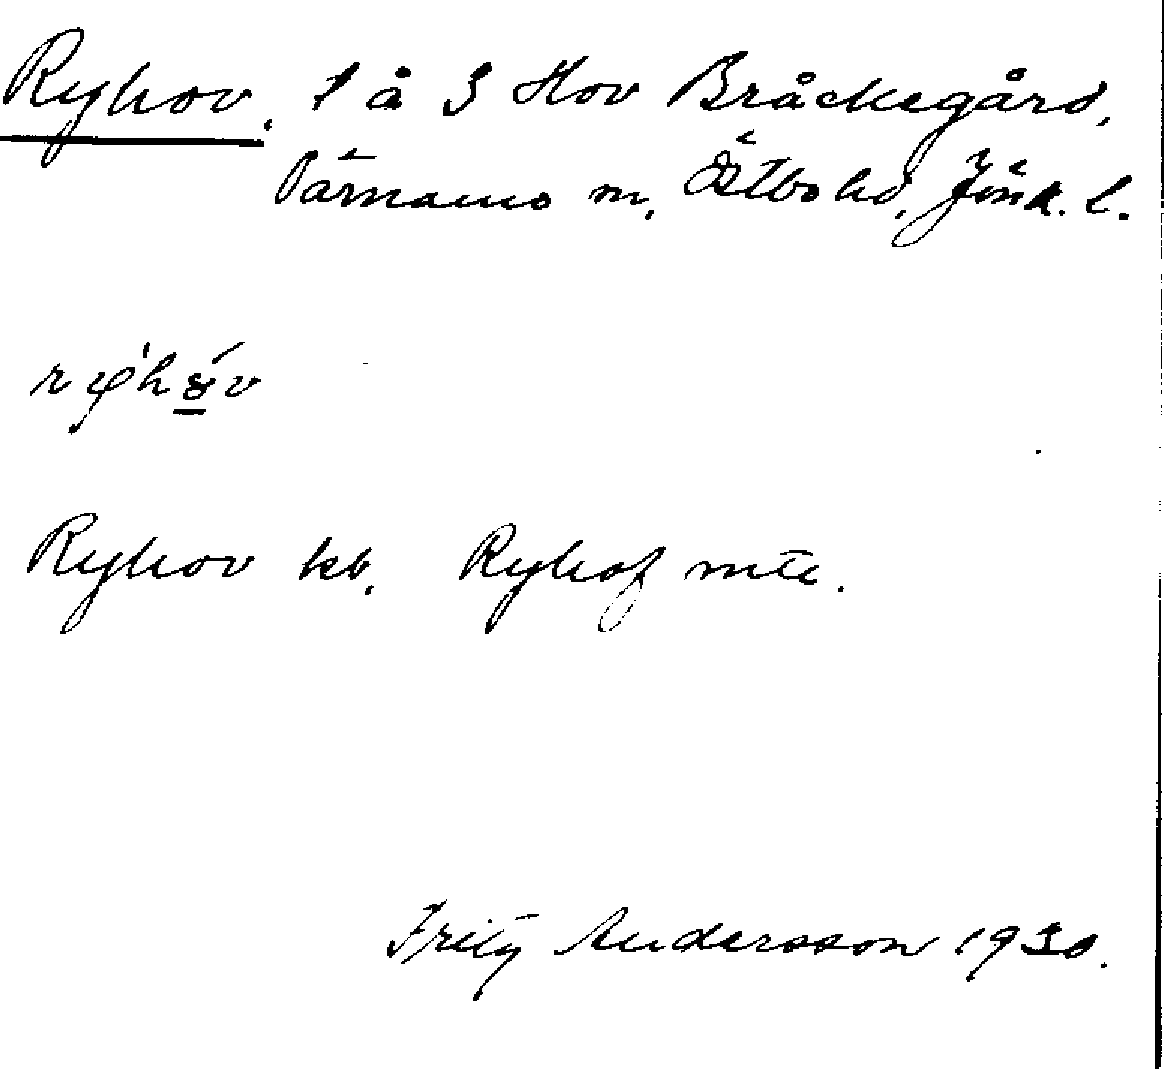 Ryhov. l å S Hov Bråckegård,
Värnamo sn, Östbo hd, Jönk. l.
Ryhov kb. Ryhof mtl.
Fritz Andersson 1930.